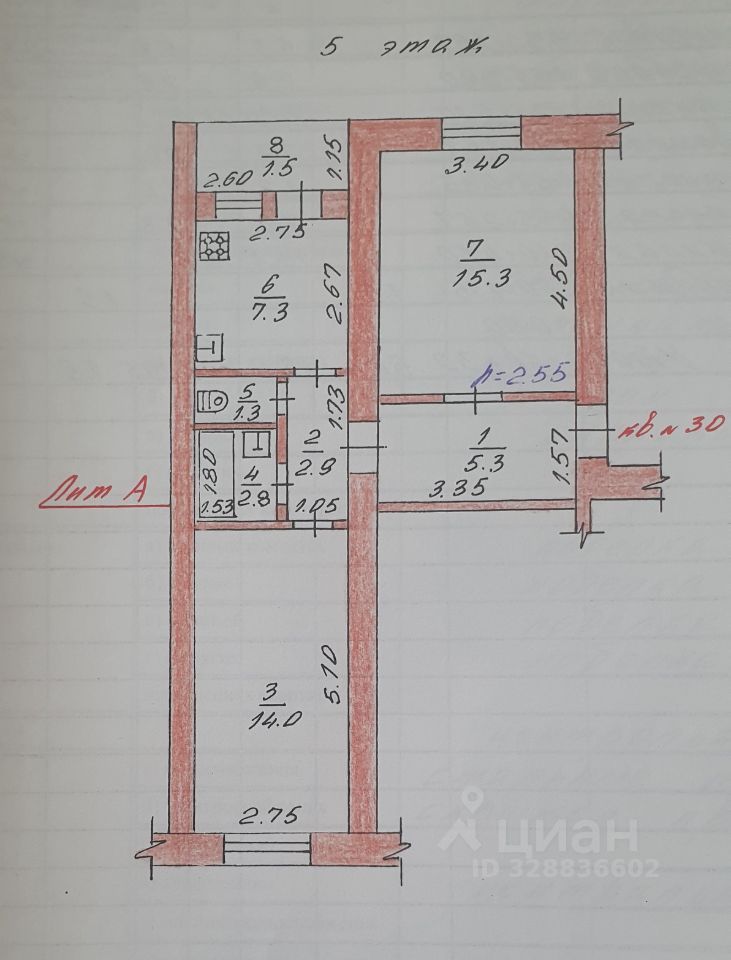 5 этаж
8
1.5
1.15
2.60
2.75
3.40
7
15.3
4.50
6
7.3
2.67
h=2.55
5
1.3
1.73
2
2.9
1
5.3
1.57
кв. № 30
3.35
1.80
4
2.8
1.53
1.05
Лит А
3
14.0
5.10
2.75
циан
ID 328836602